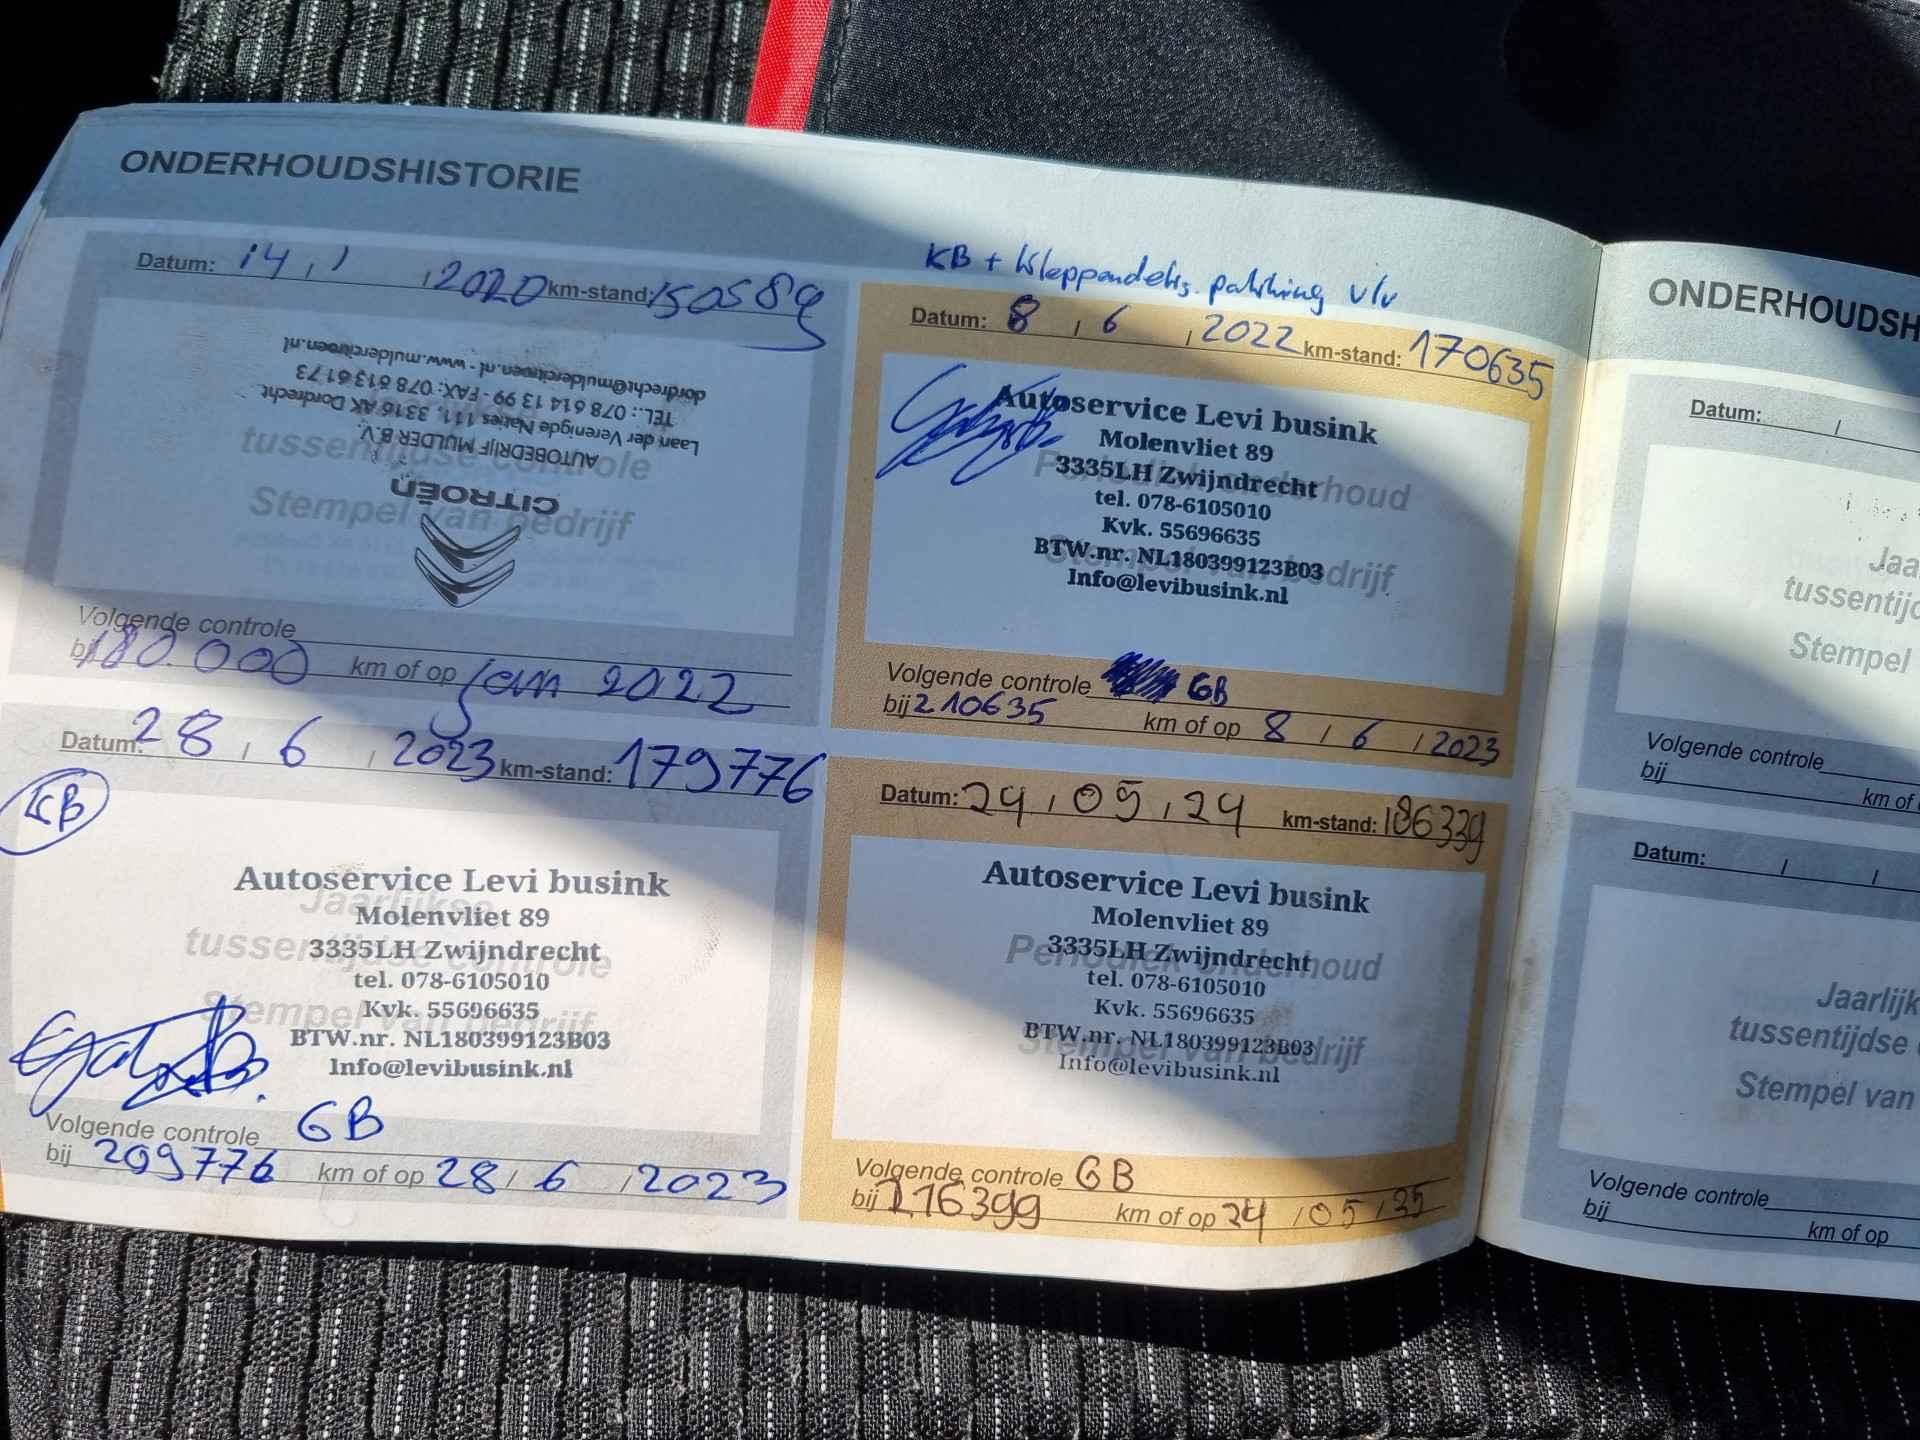 ONDERHOUDSHISTORIE
Datum: 14, 1, 2020 km-stand: 150589
CITROËN
AUTOBEDRIJF MULDER B.V.
Laan der Verenigde Naties 111, 3316 AK Dordrecht
TEL.: 078 613 61 73
FAX: 078 614 13 99 -
dordrecht@muldercitroen.nl - www.muldercitroen.nl
tussentijdse controle
Stempel van bedrijf
Volgende controle
bij 180.000 km of op jan 2022
KB + patking v/v
Datum: 8, 6, 2022 km-stand: 170635
Autoservice Levi busink
Molenvliet 89
3335LH Zwijndrecht
tel. 078-6105010
Kvk. 55696635
BTW.nr. NL180399123B03
Info@levibusink.nl
Periodiek onderhoud
Stempel van bedrijf
Volgende controle GB
bij 210635 km of op 8 / 6 / 2023
Datum: 28 / 6 / 2023 km-stand: 179776
KB
Autoservice Levi busink
Molenvliet 89
3335LH Zwijndrecht
tel. 078-6105010
Kvk. 55696635
BTW.nr. NL180399123B03
Info@levibusink.nl
Jaarlijkse
tussentijdse controle
Stempel van bedrijf
Volgende controle GB
bij 209776 km of op 28 / 6 / 2023
Datum: 24, 05, 24 km-stand: 186339
Autoservice Levi busink
Molenvliet 89
3335LH Zwijndrecht
tel. 078-6105010
Kvk. 55696635
BTW.nr. NL180399123B03
Info@levibusink.nl
Periodiek onderhoud
Stempel van bedrijf
Volgende controle GB
bij 216399 km of op 24 / 05 / 25
ONDERHOUDSH
Datum: /
Jaa
tussentijd
Stempel
Volgende controle
bij
km of
Datum: / /
Jaarlijk
tussentijdse
Stempel van
Volgende controle
bij
km of op